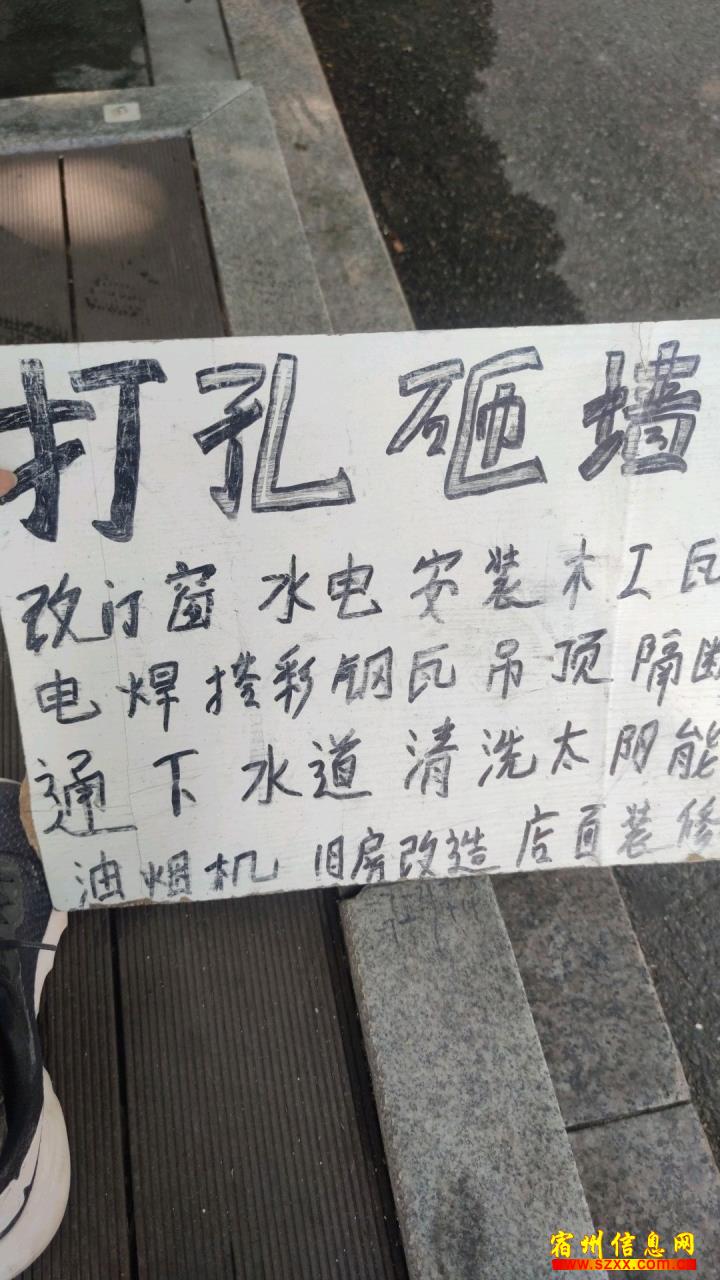 打孔 砸墙
改门窗 水电 安装木工瓦
电焊搭彩钢瓦吊顶隔断
通下水道 清洗太阳能
油烟机 旧房改造店面装修
宿州信息网
www.szxx.com.cn